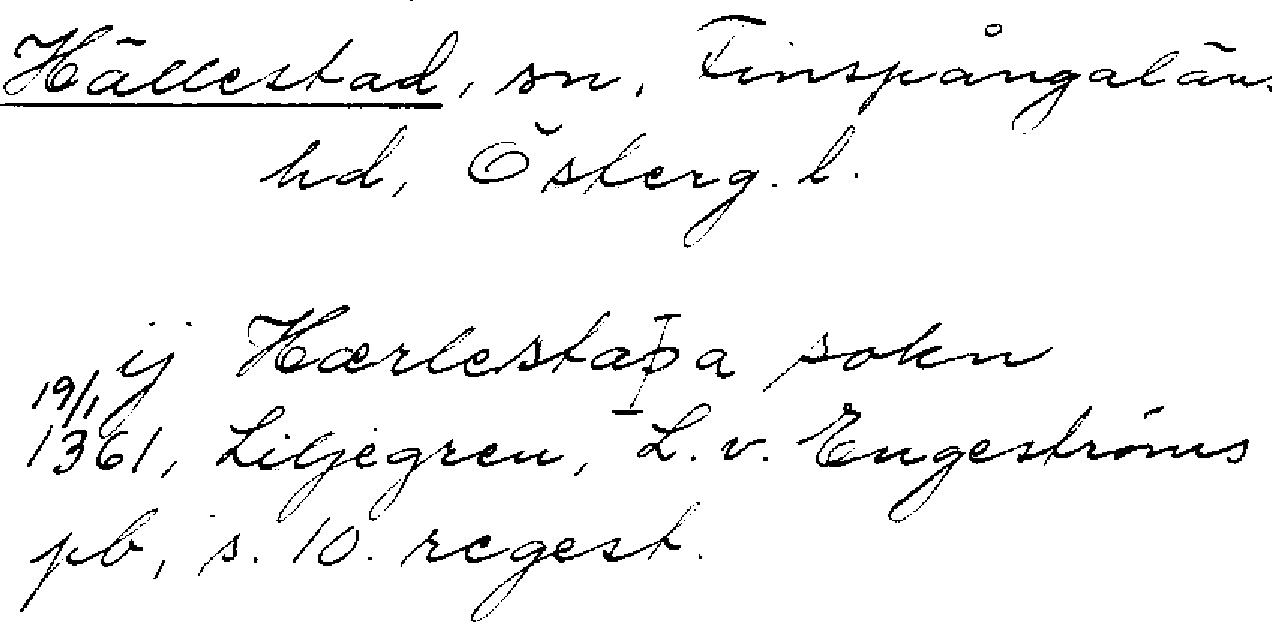 Hällestad, sn, Finspångaläns
hd, Österg. l.
ij Hærlestaþa sokn
19/1
1361, Liljegren, L. v. Engeströms
pb, s. 10. regest.